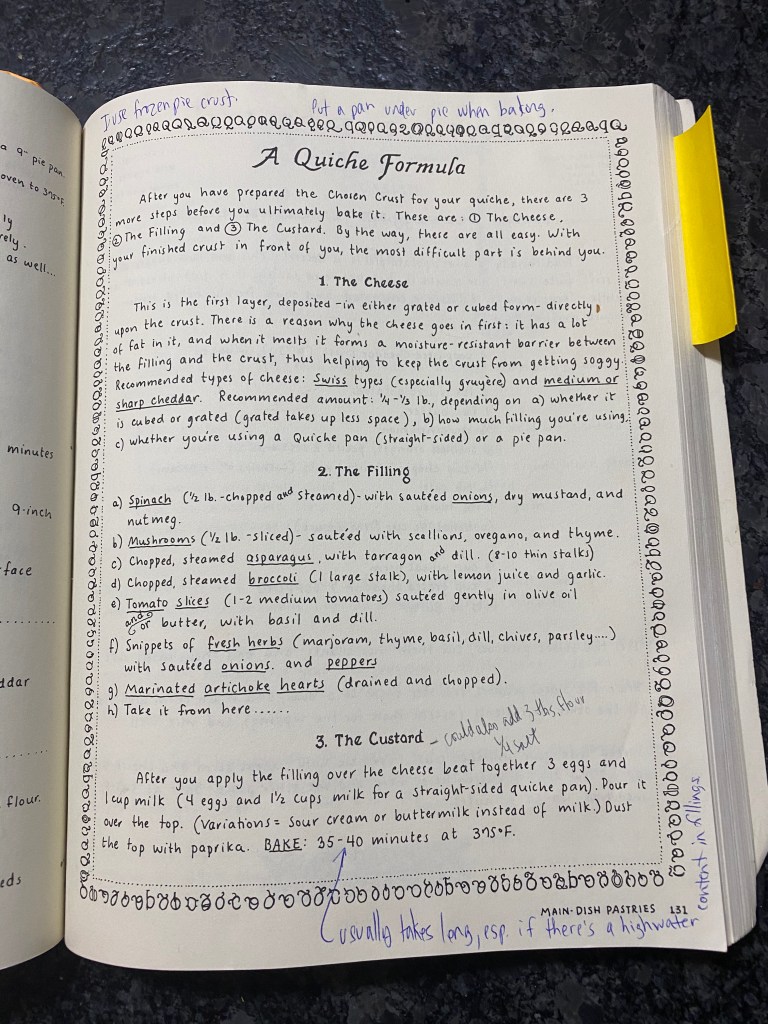 I use frozen pie crust.
Put a pan under pie when baking.
a 9" pie pan.
oven to 375°F.
ly
rely.
as well...
minutes
9-inch
face
ddar
flour.
eds
A Quiche Formula
After you have prepared the Chosen Crust for your quiche, there are 3
more steps before you ultimately bake it. These are: ① The Cheese,
② The Filling and ③ The Custard. By the way, these are all easy. With
your finished crust in front of you, the most difficult part is behind you.
1. The Cheese
This is the first layer, deposited -in either grated or cubed form- directly
upon the crust. There is a reason why the cheese goes in first: it has a lot
of fat in it, and when it melts it forms a moisture-resistant barrier between
the filling and the crust, thus helping to keep the crust from getting soggy.
Recommended types of cheese: Swiss types (especially gruyère) and medium or
sharp cheddar. Recommended amount: ¼-⅓ lb., depending on a) whether it
is cubed or grated (grated takes up less space), b) how much filling you're using,
c) whether you're using a Quiche pan (straight-sided) or a pie pan.
2. The Filling
a) Spinach (½ lb. -chopped and steamed)- with sautéed onions, dry mustard, and
nutmeg.
b) Mushrooms (½ lb. -sliced)- sautéed with scallions, oregano, and thyme.
c) Chopped, steamed asparagus, with tarragon and dill. (8-10 thin stalks)
d) Chopped, steamed broccoli (1 large stalk), with lemon juice and garlic.
e) Tomato slices (1-2 medium tomatoes) sautéed gently in olive oil
and/or butter, with basil and dill.
f) Snippets of fresh herbs (marjoram, thyme, basil, dill, chives, parsley....)
with sautéed onions. and peppers
g) Marinated artichoke hearts (drained and chopped).
h) Take it from here......
3. The Custard - could also add 3 tbs. flour
¼ salt
After you apply the filling over the cheese beat together 3 eggs and
1 cup milk (4 eggs and 1½ cups milk for a straight-sided quiche pan). Pour it
over the top. (Variations = sour cream or buttermilk instead of milk.) Dust
the top with paprika. BAKE: 35-40 minutes at 375°F.
MAIN-DISH PASTRIES 131
usually takes long, esp. if there's a high water
content in fillings